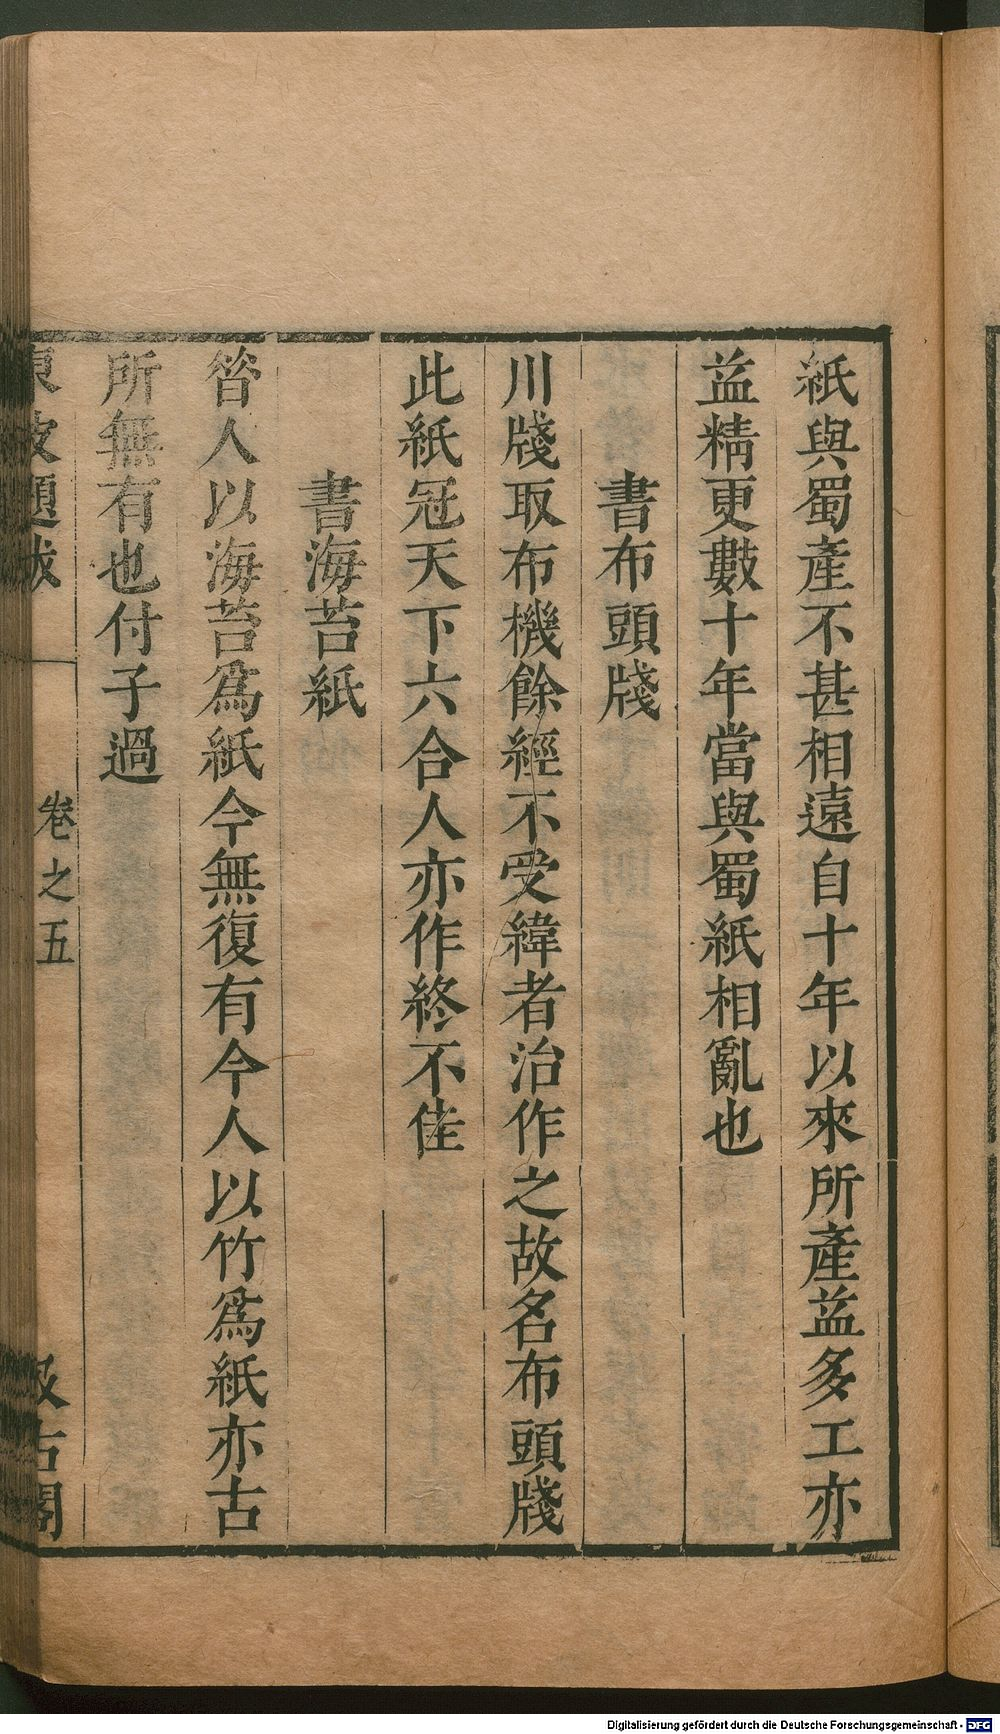 紙與蜀產不甚相遠自十年以來所產益多工亦
益精更數十年當與蜀紙相亂也
書布頭牋
川牋取布機餘經不受緯者治作之故名布頭牋
此紙冠天下六合人亦作終不佳
書海苔紙
昝人以海苔爲紙今無復有今人以竹爲紙亦古
所無有也付子過
東坡題跋
卷之五
汲古閣
Digitalisierung gefördert durch die Deutsche Forschungsgemeinschaft - DFG